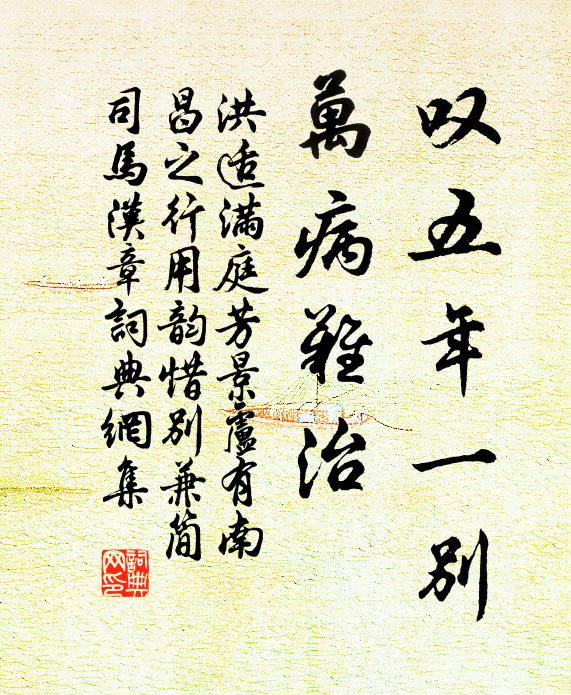 叹五年一别
萬病難治
洪适滿庭芳景廬有南
昌之行用韵惜別兼简
司馬漢章詞典網集
詞典网印